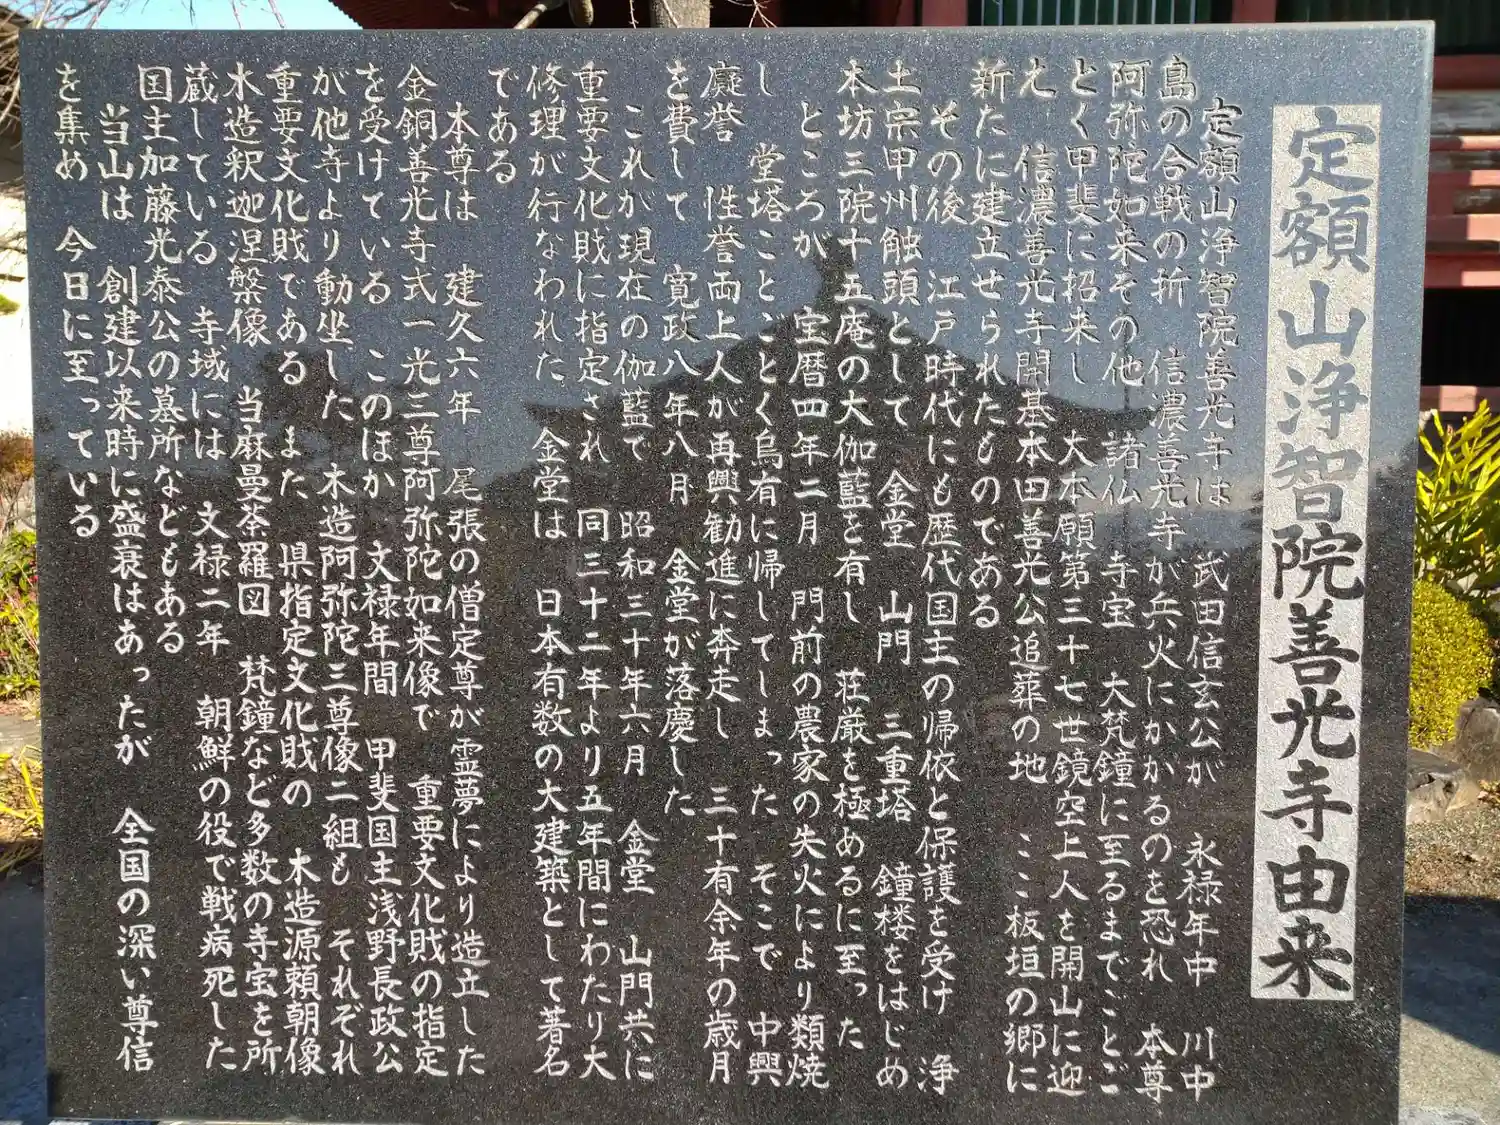 定額山浄智院善光寺由来
定額山浄智院善光寺は　武田信玄公が　永禄年中　川中
島の合戦の折　信濃善光寺が兵火にかかるのを恐れ　本尊
阿弥陀如来その他　諸仏　寺宝　大梵鐘に至るまでことご
とく甲斐に招来し　大本願第三十七世鏡空上人を開山に迎
え　信濃善光寺開基本田善光公追葬の地　ここ板垣の郷に
新たに建立せられたものである
その後　江戸時代にも歴代国主の帰依と保護を受け　浄
土宗甲州触頭として　金堂　山門　三重塔　鐘楼をはじめ
本坊三院十五庵の大伽藍を有し　荘厳を極めるに至った
ところが　宝暦四年二月　門前の農家の失火により類焼
し　堂塔ことごとく烏有に帰してしまった　そこで　中興
癡誉　性誉両上人が再興勧進に奔走し　三十有余年の歳月
を費して　寛政八年八月　金堂が落慶した
これが現在の伽藍で　昭和三十年六月　金堂　山門共に
重要文化財に指定され　同三十二年より五年間にわたり大
修理が行なわれた　金堂は　日本有数の大建築として著名
である
本尊は　建久六年　尾張の僧定尊が霊夢により造立した
金銅善光寺式一光三尊阿弥陀如来像で　重要文化財の指定
を受けている　このほか　文禄年間　甲斐国主浅野長政公
が他寺より動坐した　木造阿弥陀三尊像二組も　それぞれ
重要文化財である　また　県指定文化財の　木造源頼朝像
木造釈迦涅槃像　当麻曼荼羅図　梵鐘など多数の寺宝を所
蔵している　寺域には　文禄二年　朝鮮の役で戦病死した
国主加藤光泰公の墓所などもある
当山は　創建以来時に盛衰はあったが　全国の深い尊信
を集め　今日に至っている